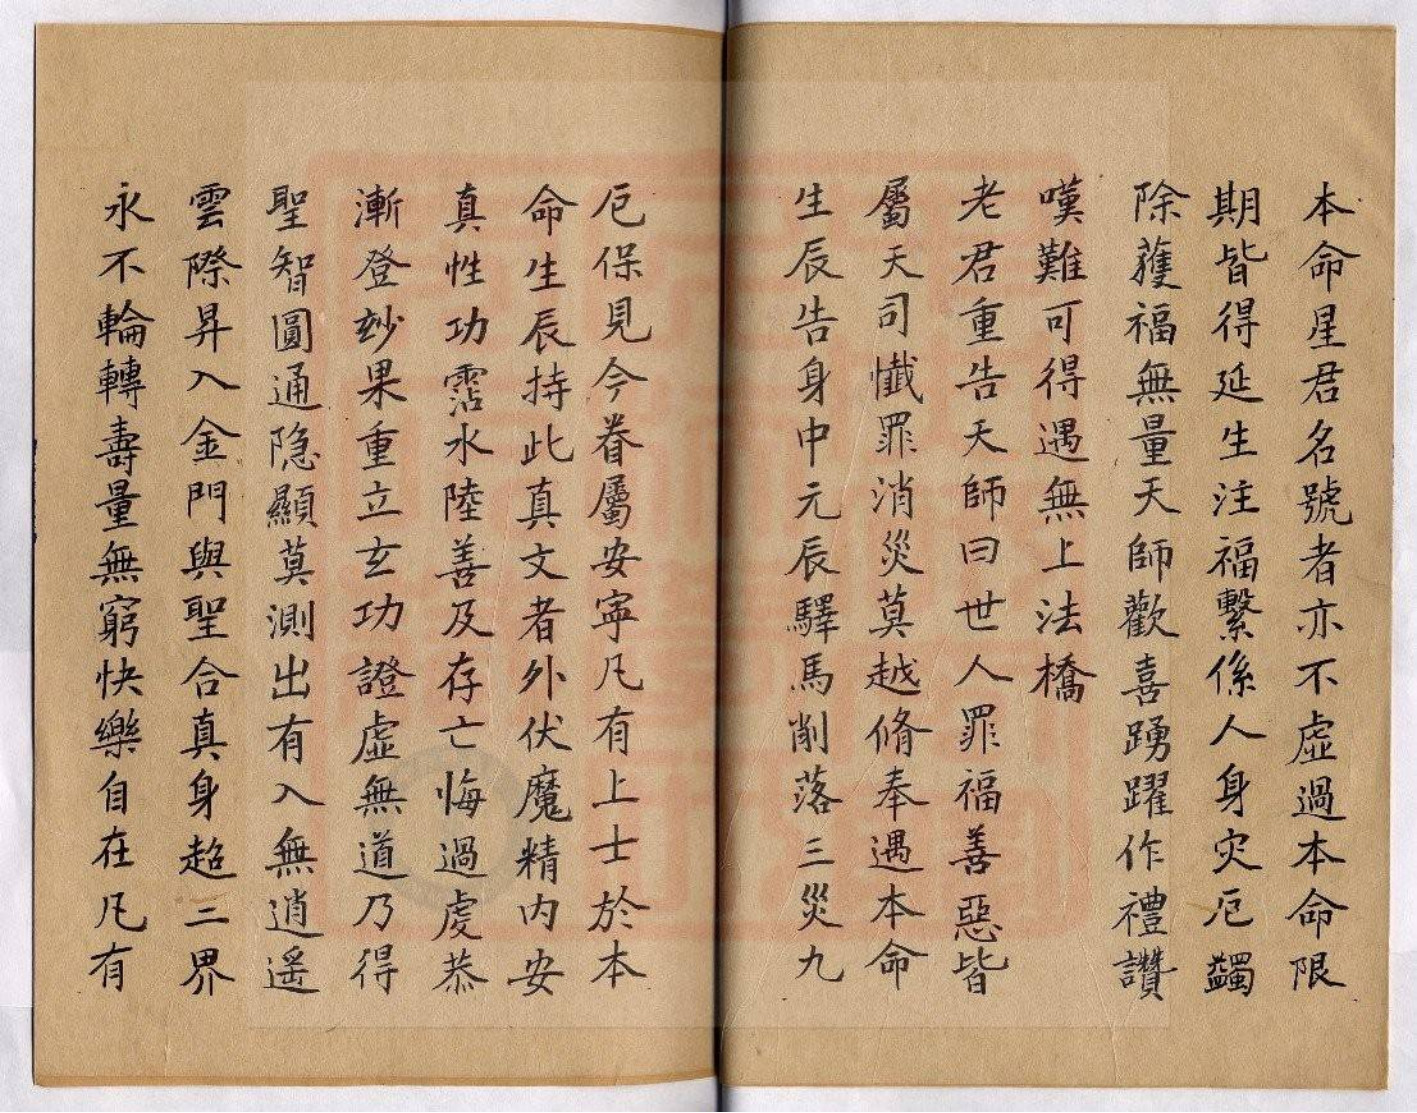 本命星君名號者亦不虛過本命限
期皆得延生注福繫係人身灾厄蠲
除蒦福無量天師歡喜踴躍作禮讚
嘆難可得遇無上法橋
老君重告天師曰世人罪福善惡皆
屬天司懺罪消災莫越脩奉遇本命
生辰告身中元辰驛馬削落三災九
厄保見今眷屬安寧凡有上士於本
命生辰持此真文者外伏魔精内安
真性功霑水陸善及存亡悔過虔恭
漸登玅果重立玄功證虛無道乃得
聖智圓通隐顯莫測出有入無逍遥
雲際昇入金門與聖合真身超三界
永不輪轉壽量無窮快樂自在凡有